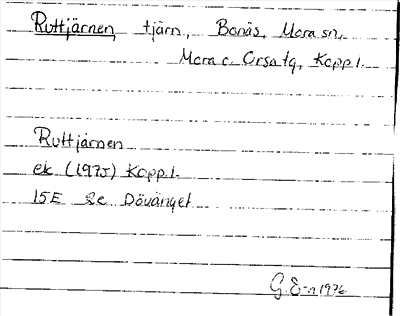 Ruttjärnen, tjärn, Bonäs, Mora sn,
Mora o. Orsa tg, Kopp.l.
Ruttjärnen
ek (1975) Kopp.l.
15E 2c Dövänget
G.E-n 1976